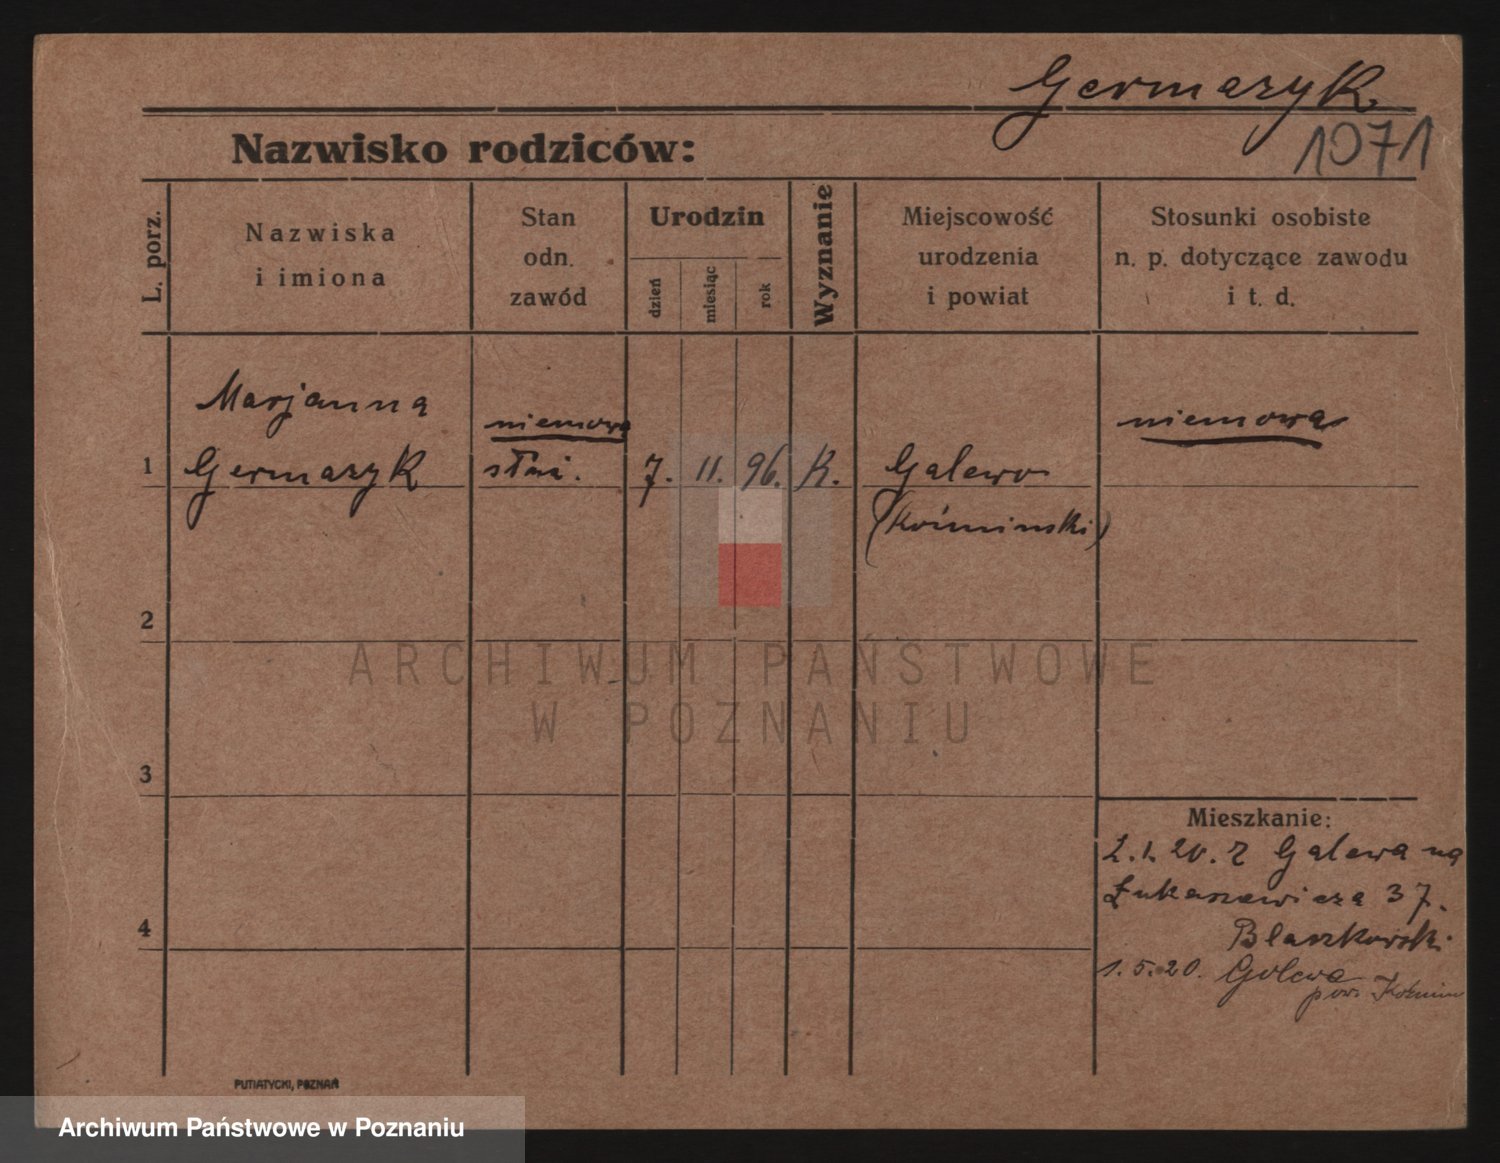 Germazyk
1071
Nazwisko rodziców:
L. porz.
Nazwiska
i imiona
Stan
odn.
zawód
Urodzin
dzień
miesiąc
rok
Wyznanie
Miejscowość
urodzenia
i powiat
Stosunki osobiste
n. p. dotyczące zawodu
i t. d.
Marjanna
niemowa
niemowa
1 Germazyk
7. 11. 96. K. Galewo
(Koźmiński)
2
ARCHIWUM PAŃSTWOWE
W POZNANIU
3
Mieszkanie:
2.1.20. z Galewa na
Łukaszewicza 37.
4
Blaszkowski
1.5.20. Golewo
pow. Koźmin
PUTIATYCKI, POZNAŃ
Archiwum Państwowe w Poznaniu